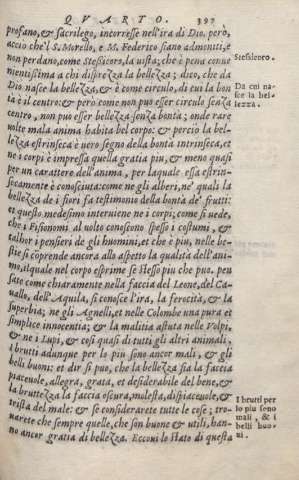 QVARTO. 397
profano, & sacrilego, incorresse nell'ira di Dio. però,
accio che'l S. Morello, e M. Federico siano admoniti, e
non perdano, come Stesicoro, la uista; che è pena conue
nientissima a chi disprezza la bellezza; dico, che da
Dio nasce la bellezza, & è come circulo, di cui la bon
tà è il centro: & però come non puo esser circulo senza
centro, non puo esser bellezza senza bontà; onde rare
uolte mala anima habita bel corpo: & perciò la bel-
lezza estrinseca è uero segno della bontà intrinseca, et
ne i corpi è impressa quella gratia piu, & meno quasi
per un carattere dell'anima, per laquale essa estrin-
secamente è conosciuta: come ne gli alberi, ne' quali la
bellezza de i fiori fa testimonio della bontà de' frutti:
et questo medesimo interuiene ne i corpi; come si uede,
che i Fisonomi al uolto conoscono spesso i costumi, &
talhor i pensieri de gli huomini, et che è piu, nelle be-
stie si coprende ancora allo aspetto la qualità dell'ani-
mo, ilquale nel corpo esprime se stesso piu che puo. pen
sate come chiaramente nella faccia del Leone, del Ca-
uallo, dell'Aquila, si conosce l'ira, la ferocità, & la
superbia; ne gli Agnelli, et nelle Colombe una pura et
simplice innocentia; & la malitia astuta nelle Volpi,
& ne i Lupi, & cosi quasi di tutti gli altri animali.
I brutti adunque per lo piu sono ancor mali, & gli
belli buoni: et dir si puo, che la bellezza sia la faccia
piaceuole, allegra, grata, et desiderabile del bene, &
la bruttezza la faccia oscura, molesta, dispiaceuole, &
trista del male: & se considerarete tutte le cose; tro-
uarete che sempre quelle, che son buone & utili, han-
no ancor gratia di bellezza. Eccoui lo stato di questa
Stesicoro.
Da cui na-
sce la bel-
lezza.
I brutti per
lo piu sono
mali, & i
belli buo-
ni.